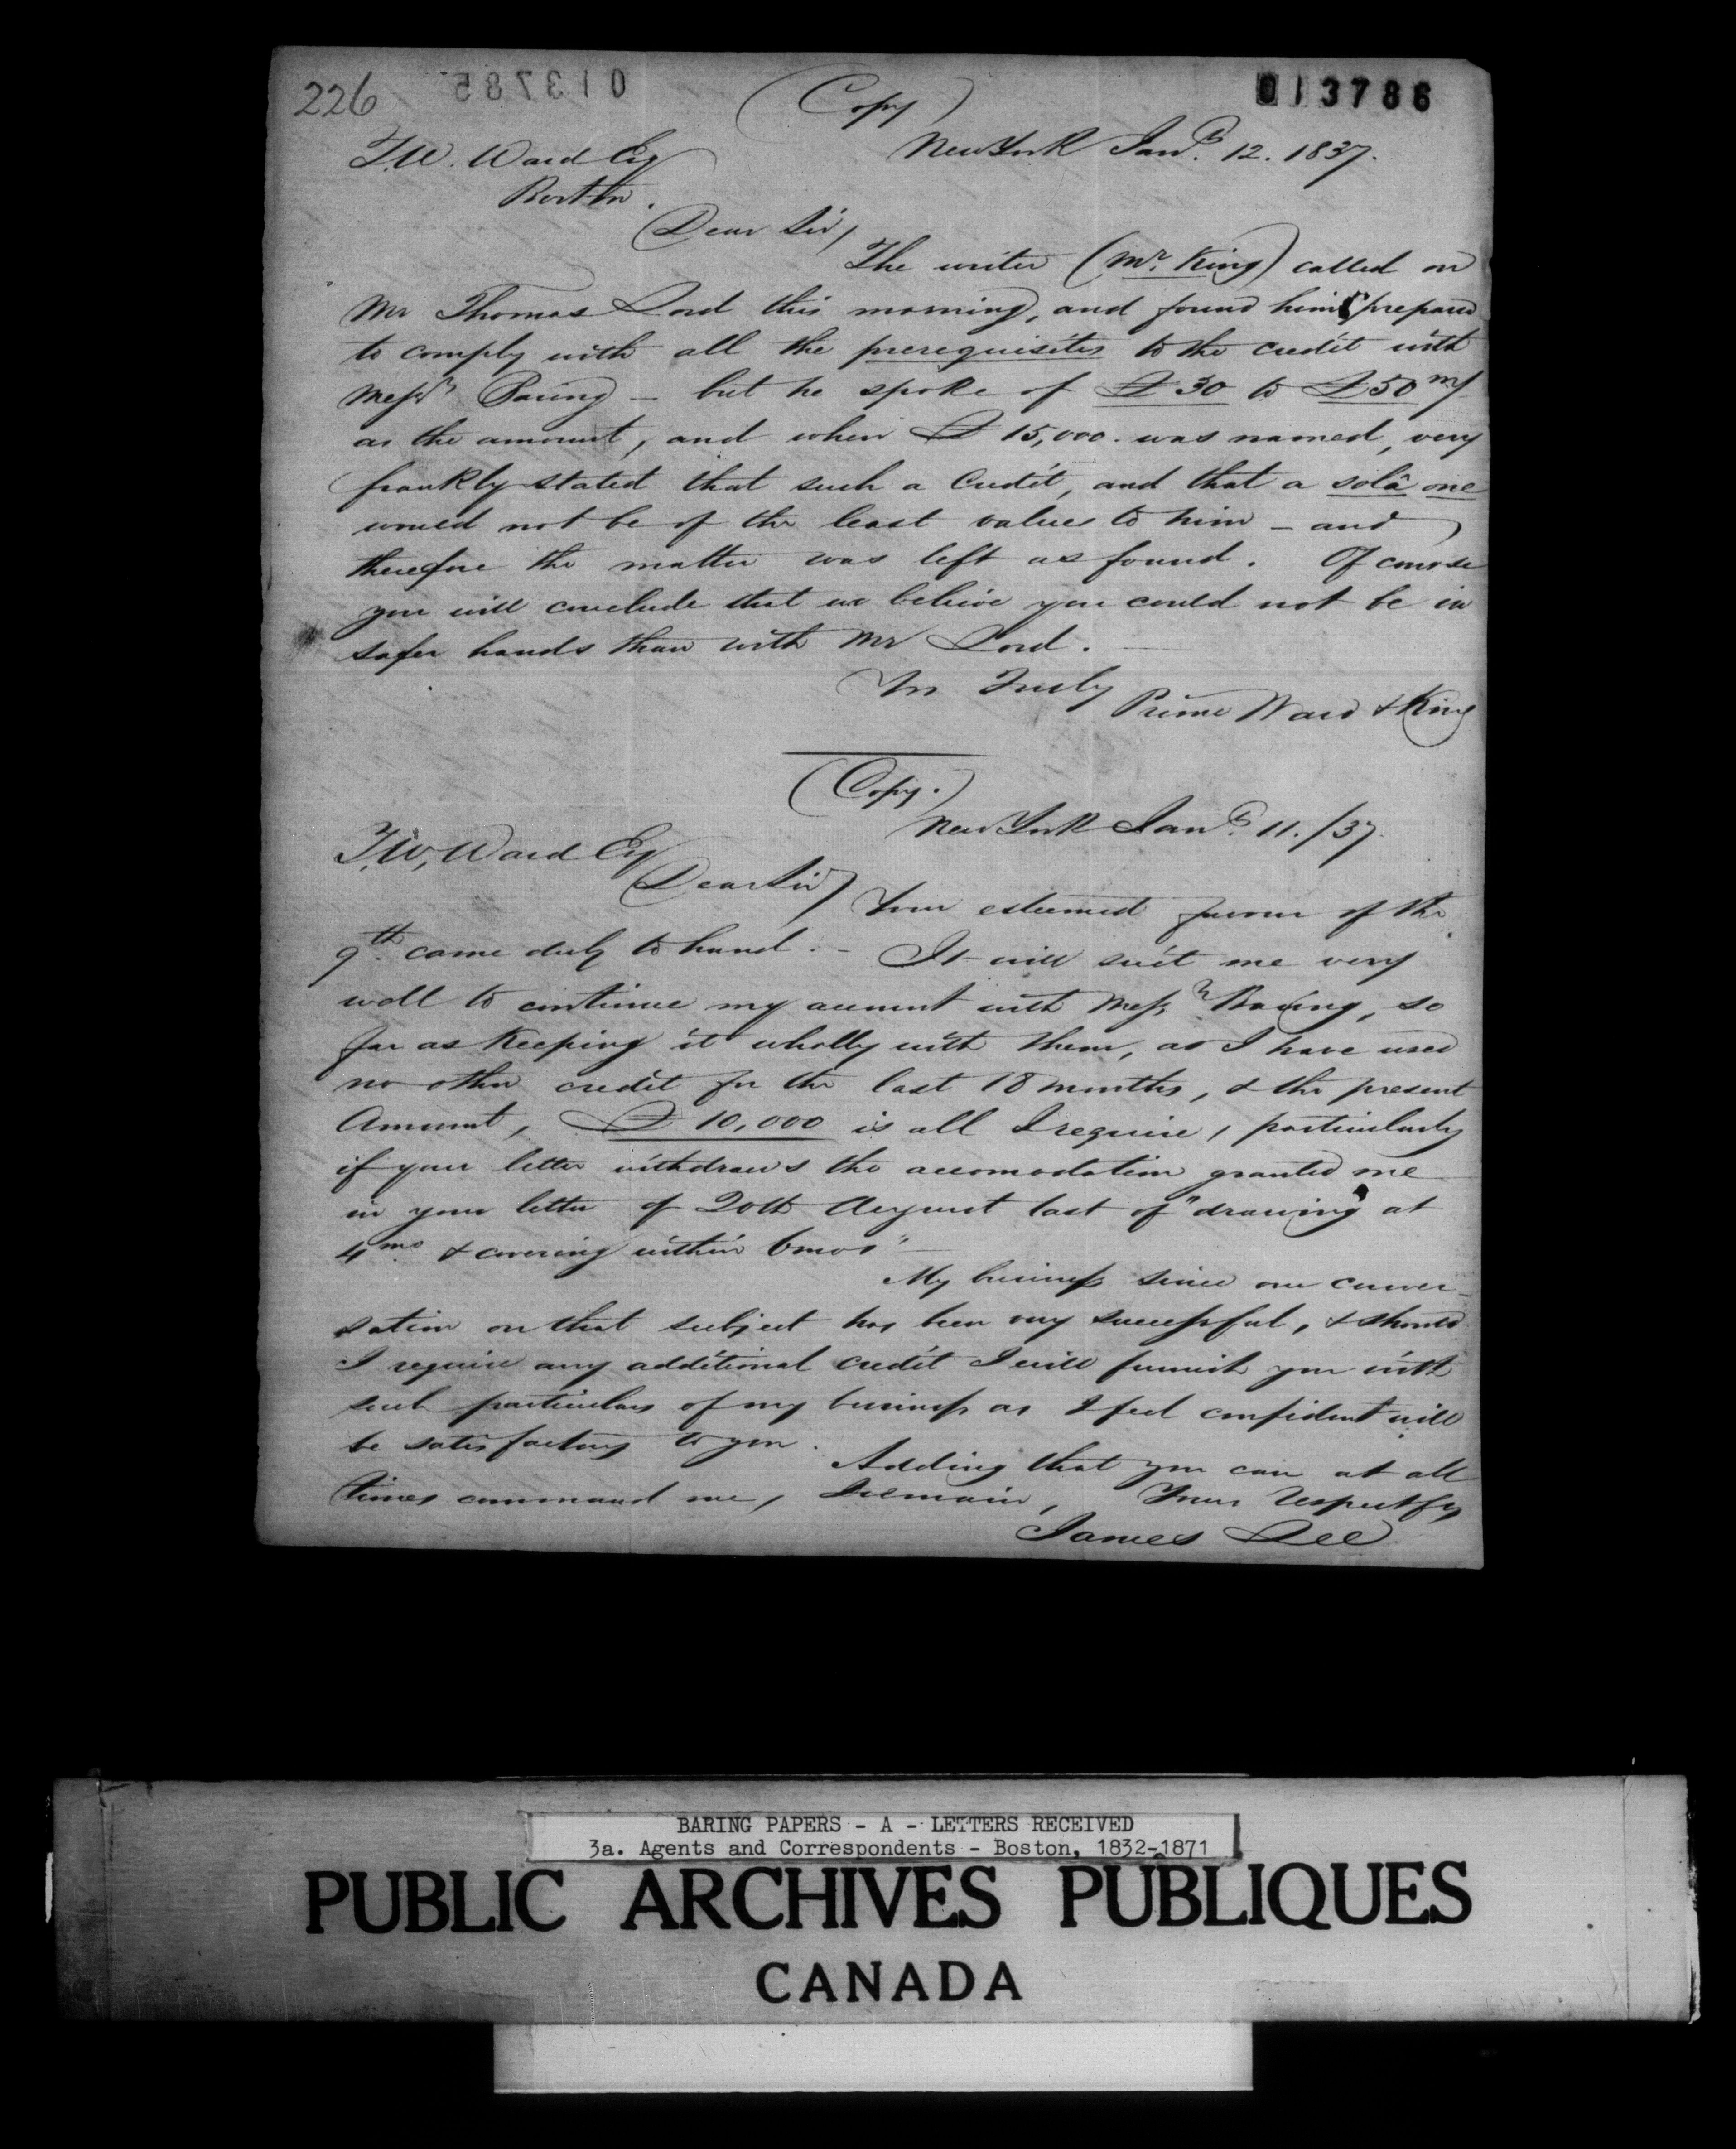 226
013785
(Copy)
013786
New York Jany. 12. 1837.
T.W. Ward Esq
Boston.
Dear Sir,
The writer (Mr. King) called on
Mr Thomas Lord this morning, and found him prepared
to comply with all the prerequisites to the credit with
Messrs Baring - but he spoke of £30 to £50 m/
as the amount, and when £15,000. was named, very
frankly stated that such a Credit, and that a sola one
would not be of the least value to him - and
therefore the matter was left as found. Of course
you will conclude that we believe you could not be in
safer hands than with Mr Lord.
Yrs Truly
Prime Ward & King
(Copy.)
New York Jany. 11./37.
T.W. Ward Esq
Dear Sir,
Your esteemed favour of the
9th. came duly to hand. - It will suit me very
well to continue my account with Messrs. Baring, so
far as Keeping it wholly with them, as I have used
no other credit for the last 18 months, & the present
Amount, £10,000 is all I require, particularly
if your letter withdraws the accomodation granted me
in your letter of 20th August last of "drawing at
4 mo. & covering within 6 mos"
My business since our conver-
sation on that subject has been very successful, & should
I require any additional credit I will furnish you with
such particulars of my business as I feel confident will
be satisfactory to you.
Adding that you can at all
times command me, I remain, Yours Respectfy
James Lee
BARING PAPERS - A - LETTERS RECEIVED
3a. Agents and Correspondents - Boston, 1832-1871
PUBLIC ARCHIVES PUBLIQUES
CANADA